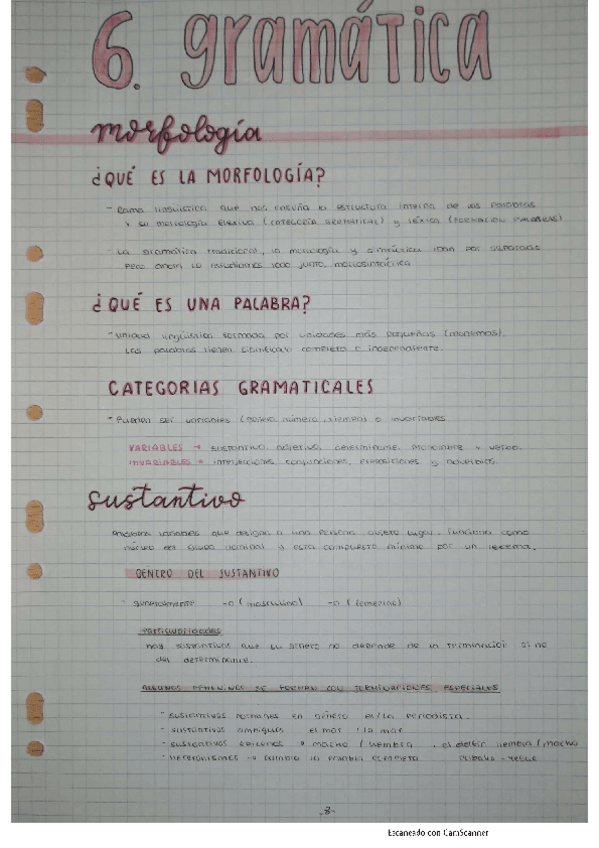 6. gramática
morfología
¿QUÉ ES LA MORFOLOGÍA?
- Rama lingüística que nos enseña la estructura interna de las palabras
y su morfología flexiva (CATEGORÍA GRAMATICAL) y léxica (FORMACIÓN PALABRAS)
- La gramática tradicional, la morfología y sintáctica por separado
pero ahora lo estudiamos todo junto, morfosintáctica
¿QUÉ ES UNA PALABRA?
- unidad lingüística formada por unidades más pequeñas (monemas).
Las palabras tienen significado completo e independiente.
CATEGORIAS GRAMATICALES
- Pueden ser variables (género, número, tiempo) o invariables
VARIABLES → sustantivo, adjetivo, determinante, pronombre y verbo.
INVARIABLES → interjecciones, conjunciones, preposiciones y adverbios.
sustantivo
palabras variables que designa a una persona, objeto, lugar. Funciona como
núcleo del grupo nominal y esta compuesto mínimo por un lexema.
GENERO DEL SUSTANTIVO
- Generalmente -o (masculino) -a (femenino)
Particularidades
Hay sustantivos que su género no depende de la terminación si no
del determinante.
ALGUNOS FEMENINOS SE FORMAN CON TERMINACIONES ESPECIALES
- sustantivos en género el/la periodista.
- sustantivos ambiguos el mar / la mar
- sustantivos epicenos → macho / hembra. el delfín hembra / macho
- heteronimos → cambia la palabra completa
-8-
Escaneado con CamScanner